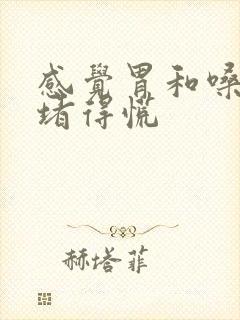 感覺胃和嗓
堵得慌
赫塔菲